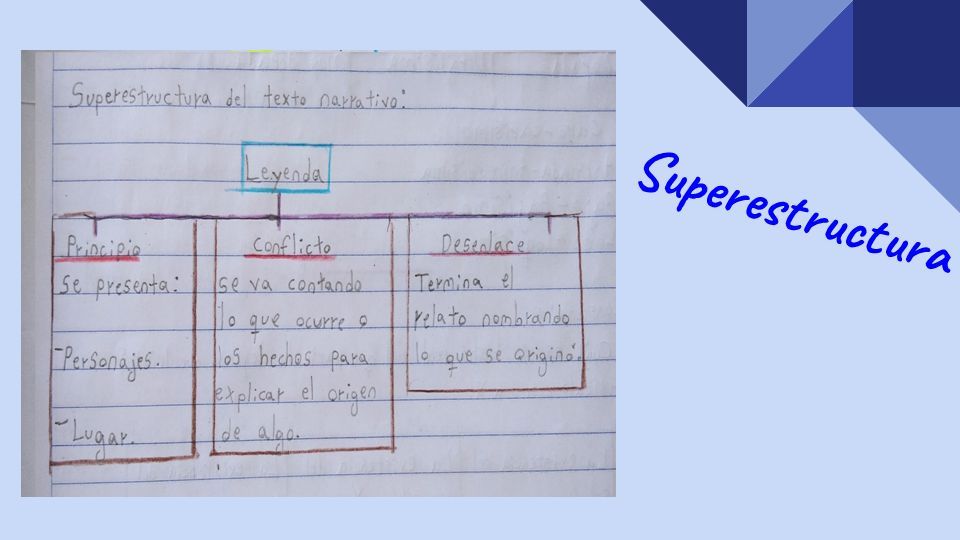 Superestructura del texto narrativo:
Leyenda
Principio
Se presenta:
-Personajes.
-Lugar.
Conflicto
Se va contando
lo que ocurre o
los hechos para
explicar el origen
de algo.
Desenlace
Termina el
relato nombrando
lo que se originó.
Superestructura